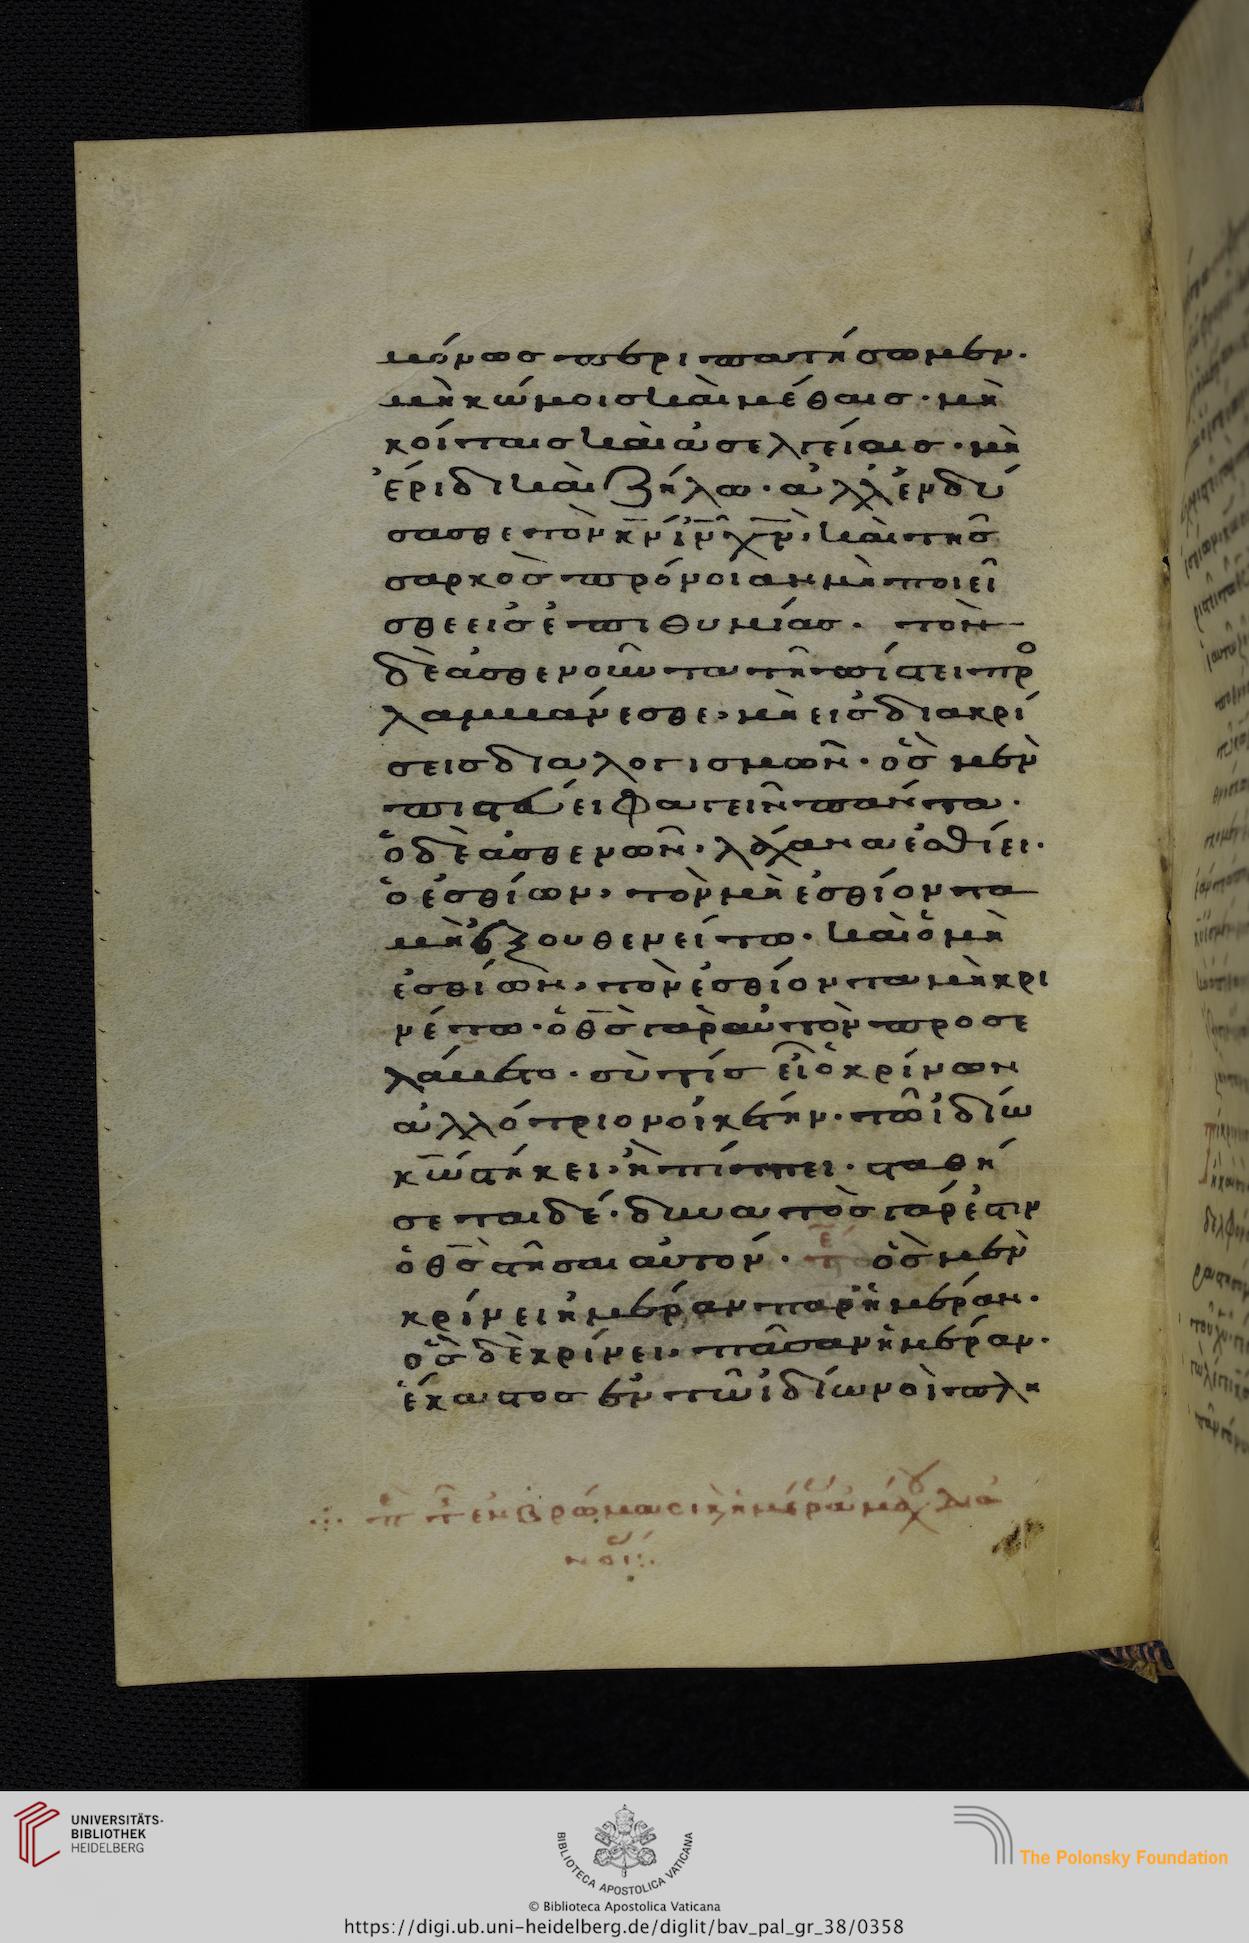 μόνως περιπατήσωμεν.
μὴ κώμοις καὶ μέθαις· μὴ
κοίταις καὶ ἀσελγείαις· μὴ
ἔριδι καὶ ζήλω· ἀλλ' ἐνδύ
σασθε τὸν κν ιν χν, καὶ τῆς
σαρκὸς πρόνοιαν μὴ ποιεῖ
σθε εἰς ἐπιθυμίας. τὸν
δὲ ἀσθενοῦντα τῆ πίστει προ
λαμβάνεσθε, μὴ εἰς διακρί
σεις διαλογισμῶν· ὃς μὲν
πιστεύει φαγεῖν πάντα.
ὁ δὲ ἀσθενῶν, λάχανα ἐσθίει.
ὁ ἐσθίων, τὸν μὴ ἐσθίοντα
μὴ ἐξουθενείτω· καὶ ὁ μὴ
ἐσθίων, τὸν ἐσθίοντα μὴ κρι
νέτω· ὁ θς γὰρ αὐτὸν προσε
λάβετο· σὺ τίς εἶ ὁ κρίνων
ἀλλότριον οἰκέτην· τῶ ἰδίω
κω στήκει· ἢ πίπτει· σταθή
σεται δέ· δυνατὸς γάρ ἐστιν
ὁ θς στῆσαι αὐτόν. ὃς μὲν
κρίνει ἡμέραν παρ' ἡμέραν.
ὃς δὲ κρίνει, πᾶσαν ἡμέραν.
ἕκαστος ἐν τῶ ἰδίω νοῒ πλη
UNIVERSITÄTS-
BIBLIOTHEK
HEIDELBERG
BIBLIOTECA APOSTOLICA VATICANA
The Polonsky Foundation
© Biblioteca Apostolica Vaticana
https://digi.ub.uni-heidelberg.de/diglit/bav_pal_gr_38/0358